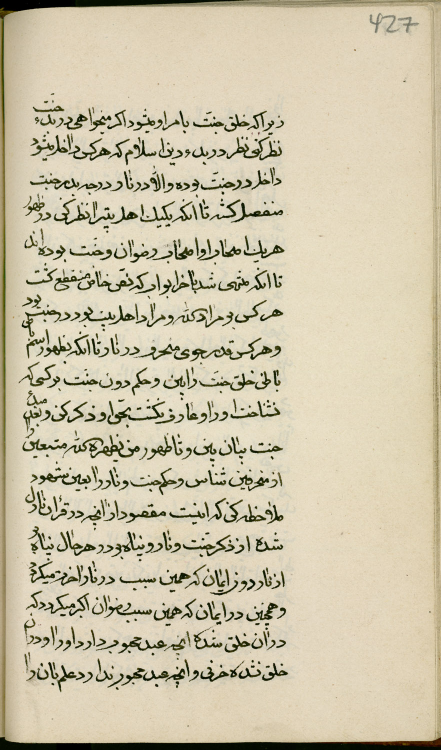 427
زیرا که خلق جنت بامر او میشود اگر میخواهی در بدء جنت
نظر کنی نظر در بدء دین اسلام که هر کس داخل میشود
داخل در جنت بوده والا در نار و درجه بدرجه جنت
منفصل گشته تا آنکه یک یک اهل بیت را نظر کنی در ظهور
هر یک اصحاب او اصحاب رضوان و جنت بوده اند
تا آنکه منتهی شد بابواب که نص خاص منقطع گشت
هر کس بر مراد الله و مراد اهل بیت بود در جنت بود
و هر کس قدر جوی منحرف در نار تا آنکه بظهور اسم
باطن خلق جنت را ببین و حکم دون جنت بر کسی که
نشناخت او را و عارف نگشت بحق او ذکر کن و بعد
جنت بیان ببین و تا ظهور من یظهره الله متبعین
از منحرفین شناس و حکم جنت و نار را ببین مشهود
ملاحظه کنی که اینست مقصود از آنچه در قرآن نازل
شده از ذکر جنت و نار و پناه بر در هر حال پناه
از نار دون ایمان که همین سبب در نار آخرت میگردد
و همچنین در ایمان که همین سبب رضوان اکبر میگردد که
در آن خلق شده آنچه عبد محبوب دارد او را و در آن
خلق نشده حرفی و آنچه عبد محبوب ندارد علم بآن را